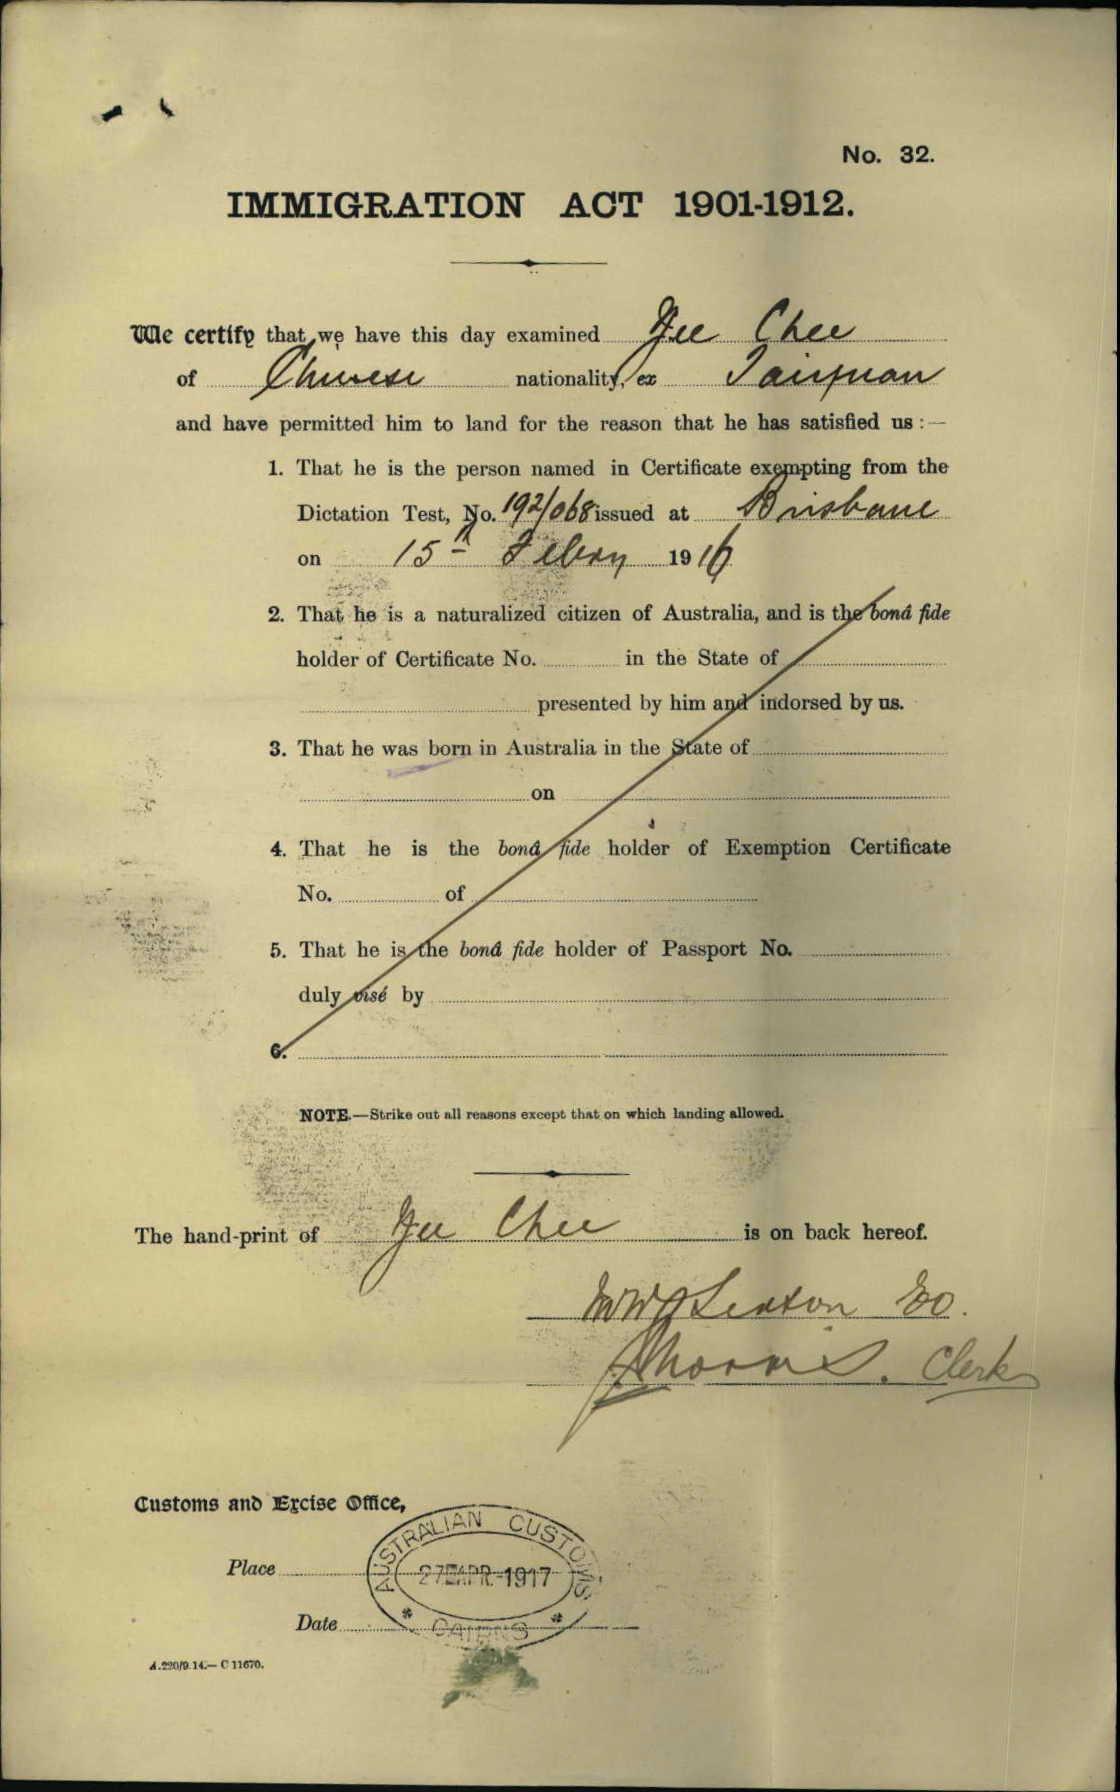 No. 32.
IMMIGRATION ACT 1901-1912.
We certify that we have this day examined Yee Chee
of Chinese nationality, ex Taiyuan
and have permitted him to land for the reason that he has satisfied us :—
1. That he is the person named in Certificate exempting from the
Dictation Test, No. 192/068 issued at Brisbane
on 15th Febry 1916
2. That he is a naturalized citizen of Australia, and is the bonâ fide
holder of Certificate No. in the State of
presented by him and indorsed by us.
3. That he was born in Australia in the State of
on
4. That he is the bonâ fide holder of Exemption Certificate
No. of
5. That he is the bonâ fide holder of Passport No.
duly visé by
6.
NOTE.—Strike out all reasons except that on which landing allowed.
The hand-print of Yee Chee is on back hereof.
Sexton EO.
Clerk
Customs and Excise Office,
AUSTRALIAN CUSTOMS
Place
27 APR. 1917
Date
CAIRNS
A.220/9.14.— C 11670.